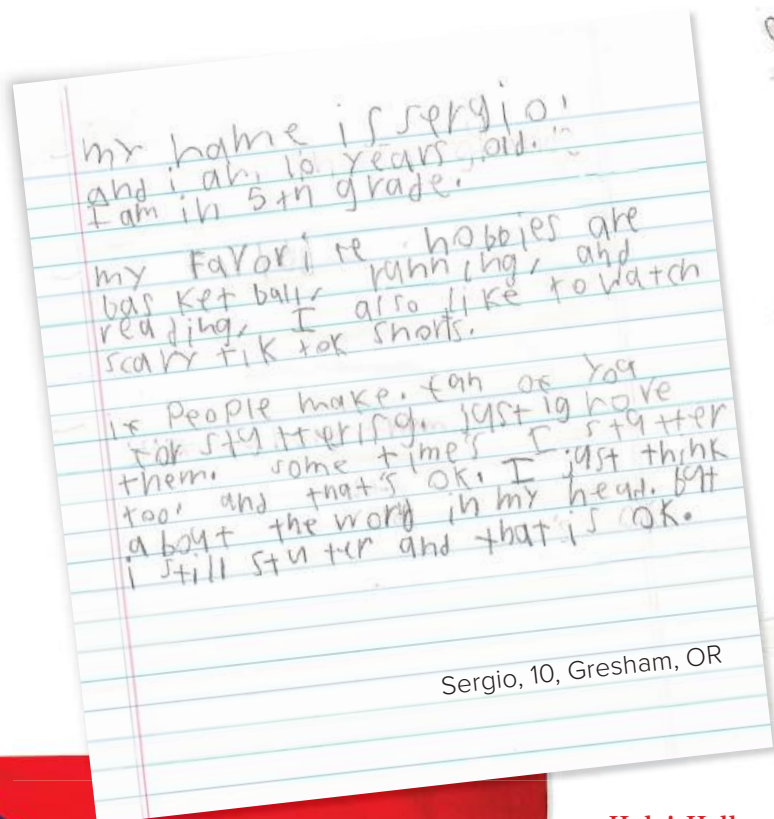 my name is sergio.
and i am 10 years old.
I am in 5th grade.
my Favorite hobbies are
basketball, running, and
reading, I also like to watch
scary tik tok shorts.
if People make. fan of you
for stuttering. just ignore
them. some time's I stutter
too. and that's ok. I just think
about the word in my head. but
i still stuter and that is ok.
Sergio, 10, Gresham, OR